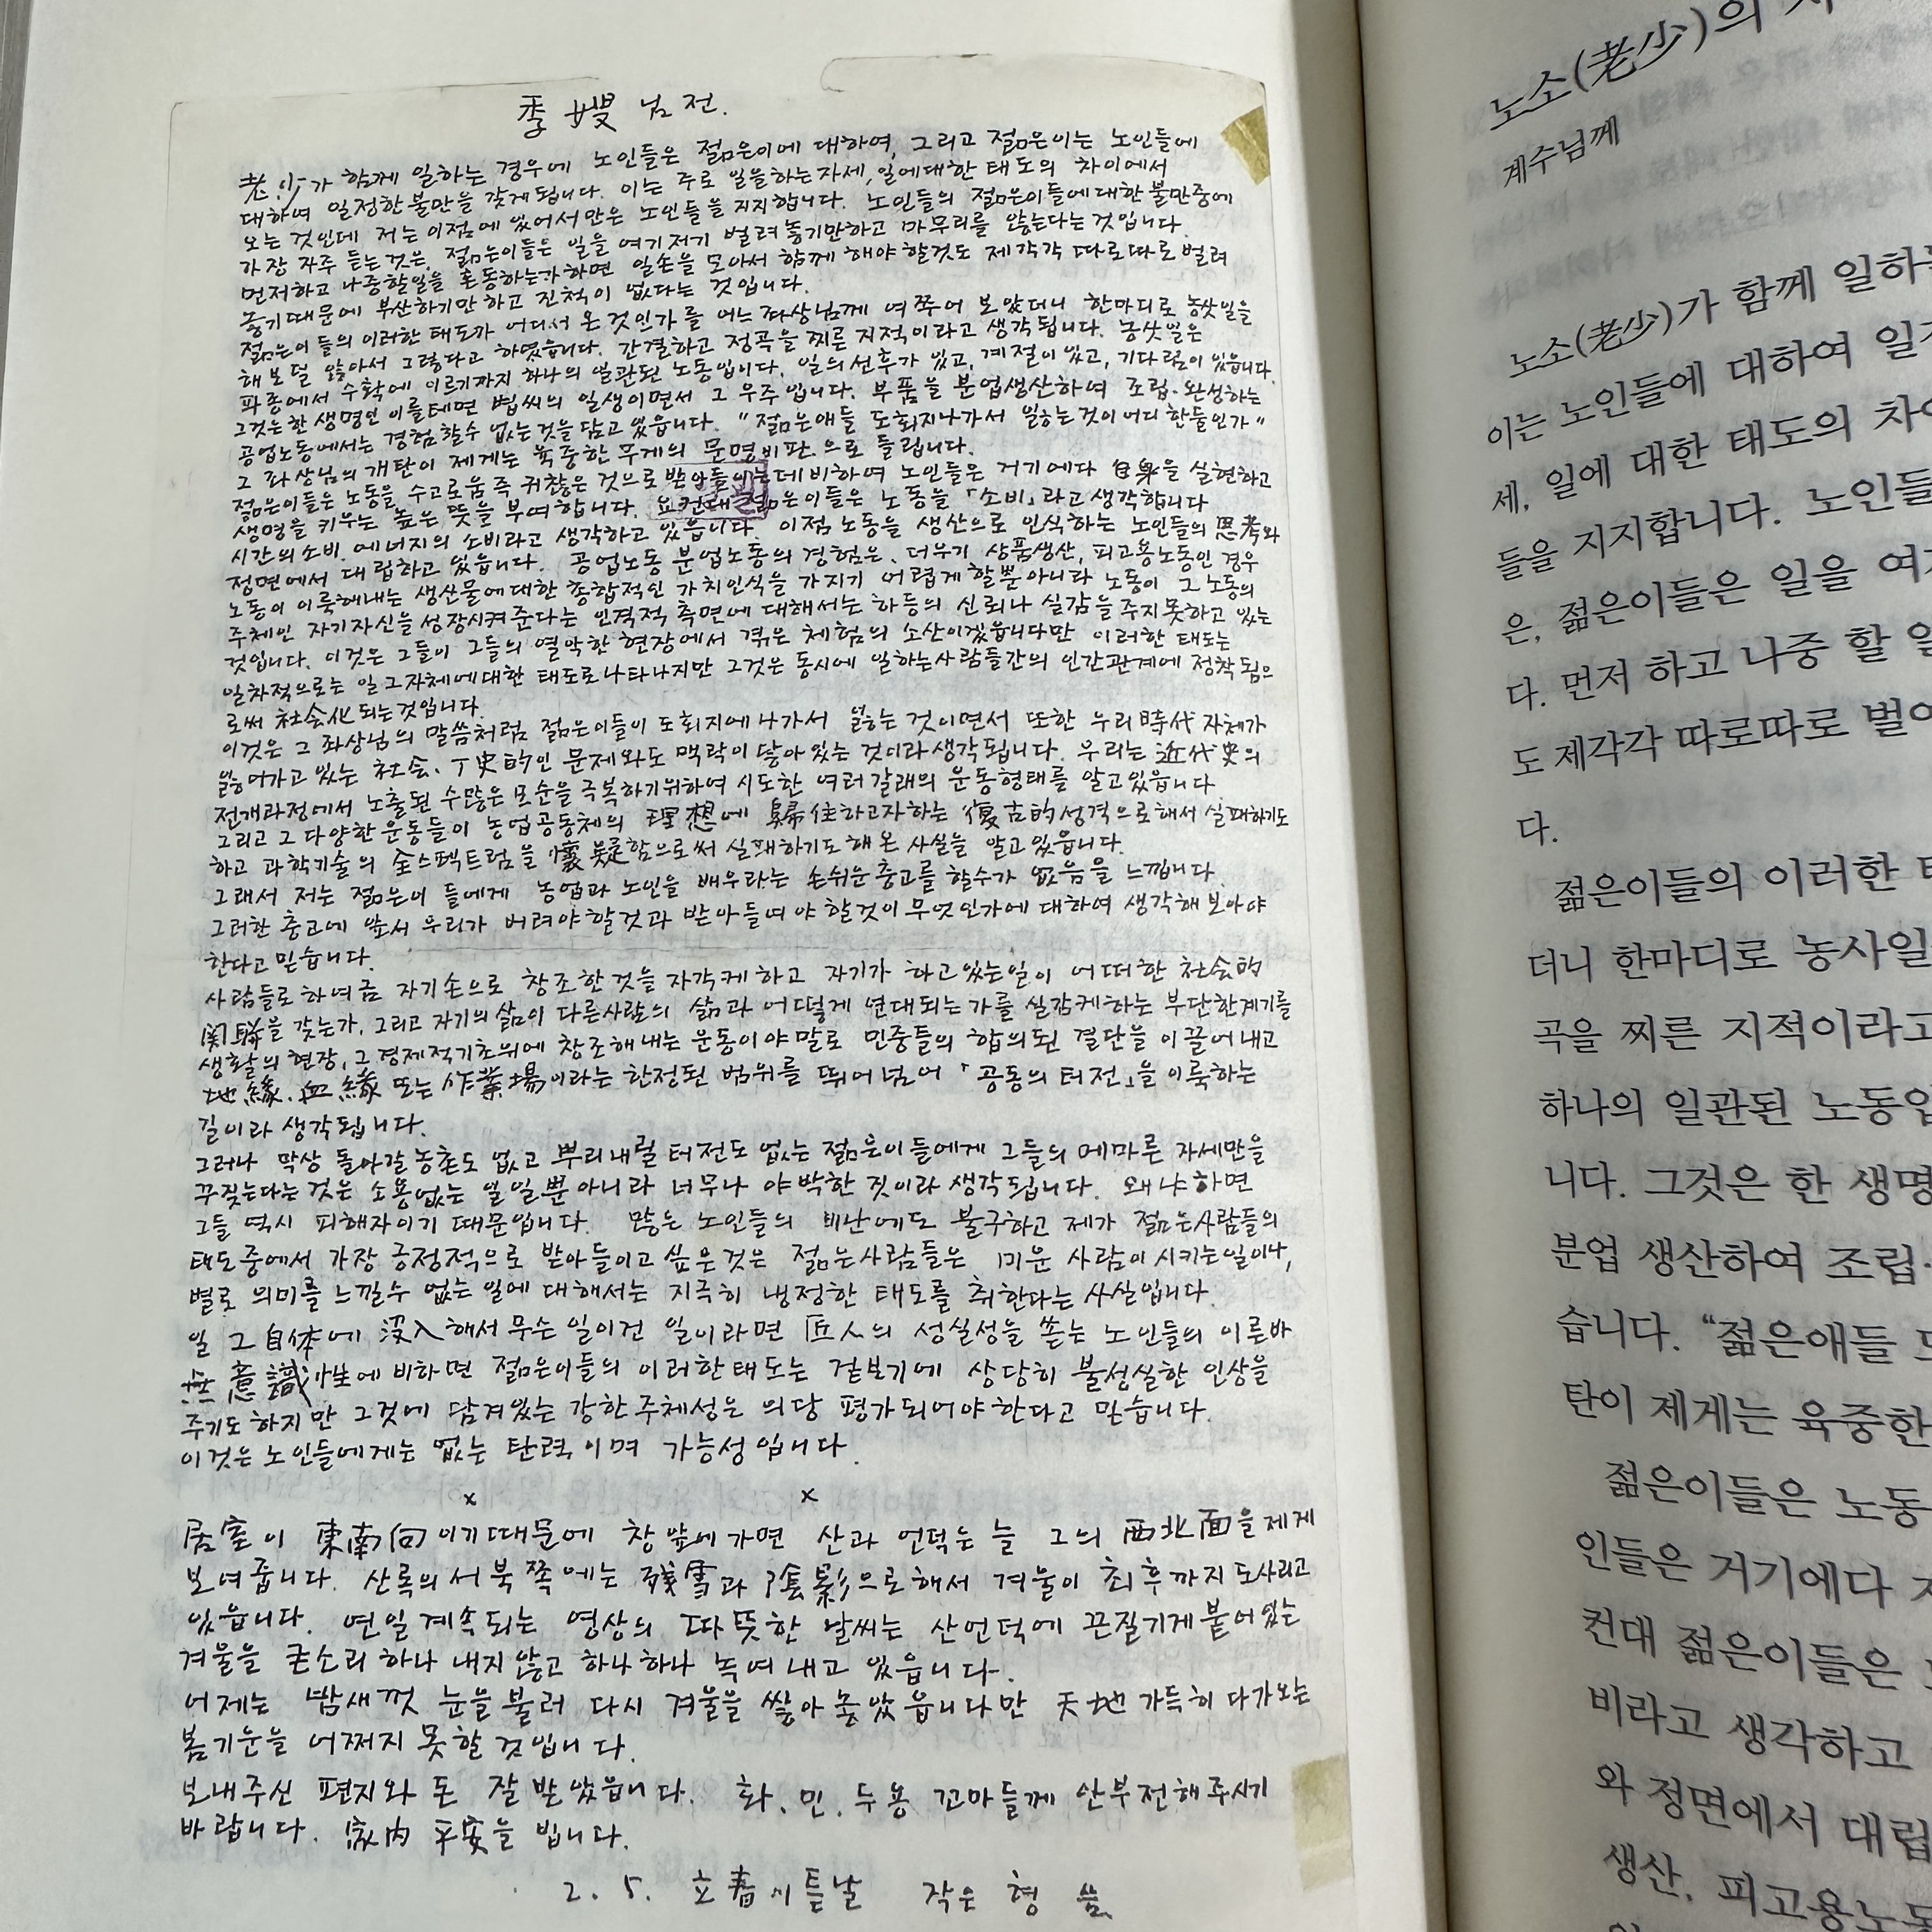 季嫂님 전.
老少가 함께 일하는 경우에 노인들은 젊은이에 대하여, 그리고 젊은이는 노인들에
대하여 일정한 불만을 갖게 됩니다. 이는 주로 일을하는자세, 일에대한 태도의 차이에서
오는 것인데 저는 이점에 있어서만은 노인들을 지지합니다. 노인들의 젊은이들에대한불만중에
가장 자주 듣는것은, 젊은이들은 일을 여기저기 벌려놓기만하고 마무리를 않는다는 것입니다.
먼저하고 나중할일을 혼동하는가하면 일손을 모아서 함께 해야할것도 제각각 따로따로 벌려
놓기때문에 부산하기만 하고 진척이 없다는 것입니다.
젊은이들의 이러한 태도가 어디서 온것인가를 어느 좌상님께 여쭈어 보았더니 한마디로 농삿일을
해보덜 않아서 그렇다고 하였읍니다. 간결하고 정곡을 찌른 지적이라고 생각됩니다. 농삿일은
파종에서 수확에 이르기까지 하나의 일관된 노동입니다. 일의선후가 있고, 계절이있고, 기다림이있읍니다.
그것은한 생명인 이를테면 볍씨의 일생이면서 그 우주입니다. 부품을 분업생산하여 조립·완성하는
공업노동에서는 경험할수 없는것을 담고 있읍니다. "젊은애들 도회지나가서 잃는것이어디 한둘인가"
그 좌상님의 개탄이 제게는 육중한 무게의 문명비판으로 들립니다.
젊은이들은 노동을, 수고로움 즉 귀찮은 것으로받아들이는데비하여 노인들은 거기에다 自身을 실현하고
생명을 키우는 높은 뜻을 부여합니다. 요컨대 젊은이들은 노동을 「소비」라고생각합니다
시간의소비, 에너지의 소비라고 생각하고 있읍니다. 이점 노동을 생산으로 인식하는 노인들의 思考와
정면에서 대립하고 있읍니다. 공업노동 분업노동의 경험은, 더우기 상품생산, 피고용노동인 경우
노동이 이룩해내는 생산물에대한 종합적인 가치인식을 가지기 어렵게할뿐아니라 노동이 그 노동의
주체인 자기자신을 성장시켜준다는 인격적 측면에 대해서는 하등의 신뢰나 실감을주지못하고 있는
것입니다. 이것은 그들이 그들의 열악한 현장에서 겪은 체험의 소산이겠읍니다만 이러한 태도는
일차적으로는 일그자체에대한 태도로나타나지만 그것은 동시에 일하는사람들간의 인간관계에 정착됨으
로써 社会化되는것입니다.
이것은 그 좌상님의 말씀처럼 젊은이들이 도회지에나가서 잃는 것이면서 또한 우리時代자체가
잃어가고있는 社会、丁史的인 문제와도 맥락이 닿아있는 것이라생각됩니다. 우리는 近代史의
전개과정에서 노출된 수많은 모순을 극복하기위하여 시도한 여러갈래의 운동형태를 알고있읍니다.
그리고 그 다양한운동들이 농업공동체의 理想에 歸住하고자하는 復古的성격으로해서 실패하기도
하고 과학기술의 全스펙트럼을 懷疑함으로써 실패하기도해온 사실을 알고있읍니다.
그래서 저는 젊은이들에게 농업과 노인을 배우라는 손쉬운충고를 할수가 없음을 느낍니다.
그러한 충고에 앞서 우리가 버려야할것과 받아들여야 할것이무엇인가에 대하여 생각해보아야
한다고믿습니다.
사람들로하여금 자기손으로 창조한것을 자각케하고 자기가 하고있는일이 어떠한 社会的
関聯을 갖는가, 그리고 자기의삶이 다른사람의 삶과 어떻게 연대되는가를 실감케하는 부단한계기를
생활의 현장, 그경제적기초위에 창조해내는 운동이야말로 민중들의 합의된 결단을 이끌어내고
地緣、血緣 또는 作業場이라는 한정된 범위를 뛰어넘어 「공동의 터전」을 이룩하는
길이라 생각됩니다.
그러나 막상 돌아갈농촌도 없고 뿌리내릴 터전도 없는 젊은이들에게 그들의 메마른 자세만을
꾸짖는다는 것은 소용없는 일일뿐 아니라 너무나 야박한 짓이라 생각됩니다. 왜냐하면
그들 역시 피해자이기 때문입니다. 많은 노인들의 비난에도 불구하고 제가 젊은사람들의
태도중에서 가장 긍정적으로 받아들이고 싶은것은 젊은사람들은 미운 사람이시키는일이나,
별로 의미를 느낄수 없는 일에 대해서는 지극히 냉정한 태도를 취한다는 사실입니다.
일 그自体에 沒入해서 무슨 일이건 일이라면 匠人의 성실성을 쏟는 노인들의 이른바
無意識性에 비하면 젊은이들의 이러한태도는 겉보기에 상당히 불성실한 인상을
주기도 하지만 그것에 담겨있는 강한주체성은 의당 평가되어야한다고 믿습니다.
이것은 노인들에게는 없는 탄력이며 가능성입니다.
x x
居室이 東南向이기때문에 창앞에가면 산과 언덕는 늘 그의 西北面을제게
보여줍니다. 산록의서북쪽에는 殘雪과 陰影으로해서 겨울이 최후까지도사리고
있읍니다. 연일계속되는 영상의 따뜻한 날씨는 산언덕에 끈질기게붙어있는
겨울을 큰소리하나 내지않고 하나하나 녹여내고 있읍니다.
어제는 밤새껏 눈을불러 다시 겨울을 쌓아놓았읍니다만 天地가득히다가오는
봄기운을 어쩌지 못할것입니다.
보내주신 편지와 돈 잘받았읍니다. 화、민、두용 꼬마들께 안부전해주시기
바랍니다. 家内 平安을 빕니다.
2. 5. 立春이튿날 작은형 씀.
노소(老少)의
계수님께
노소(老少)가 함께 일하
이는 노인들에 대하여 일
세, 일에 대한 태도의 차
들을 지지합니다. 노인들
은, 젊은이들은 일을 여
다. 먼저 하고 나중 할 일
도 제각각 따로따로 벌
다.
젊은이들의 이러한
더니 한마디로 농사일
곡을 찌른 지적이라고
하나의 일관된 노동입
니다. 그것은 한 생명
분업 생산하여 조립·
습니다. “젊은애들
탄이 제게는 육중한
젊은이들은 노동
인들은 거기에다
컨대 젊은이들은
비라고 생각하고
와 정면에서 대립
생산, 피고용노